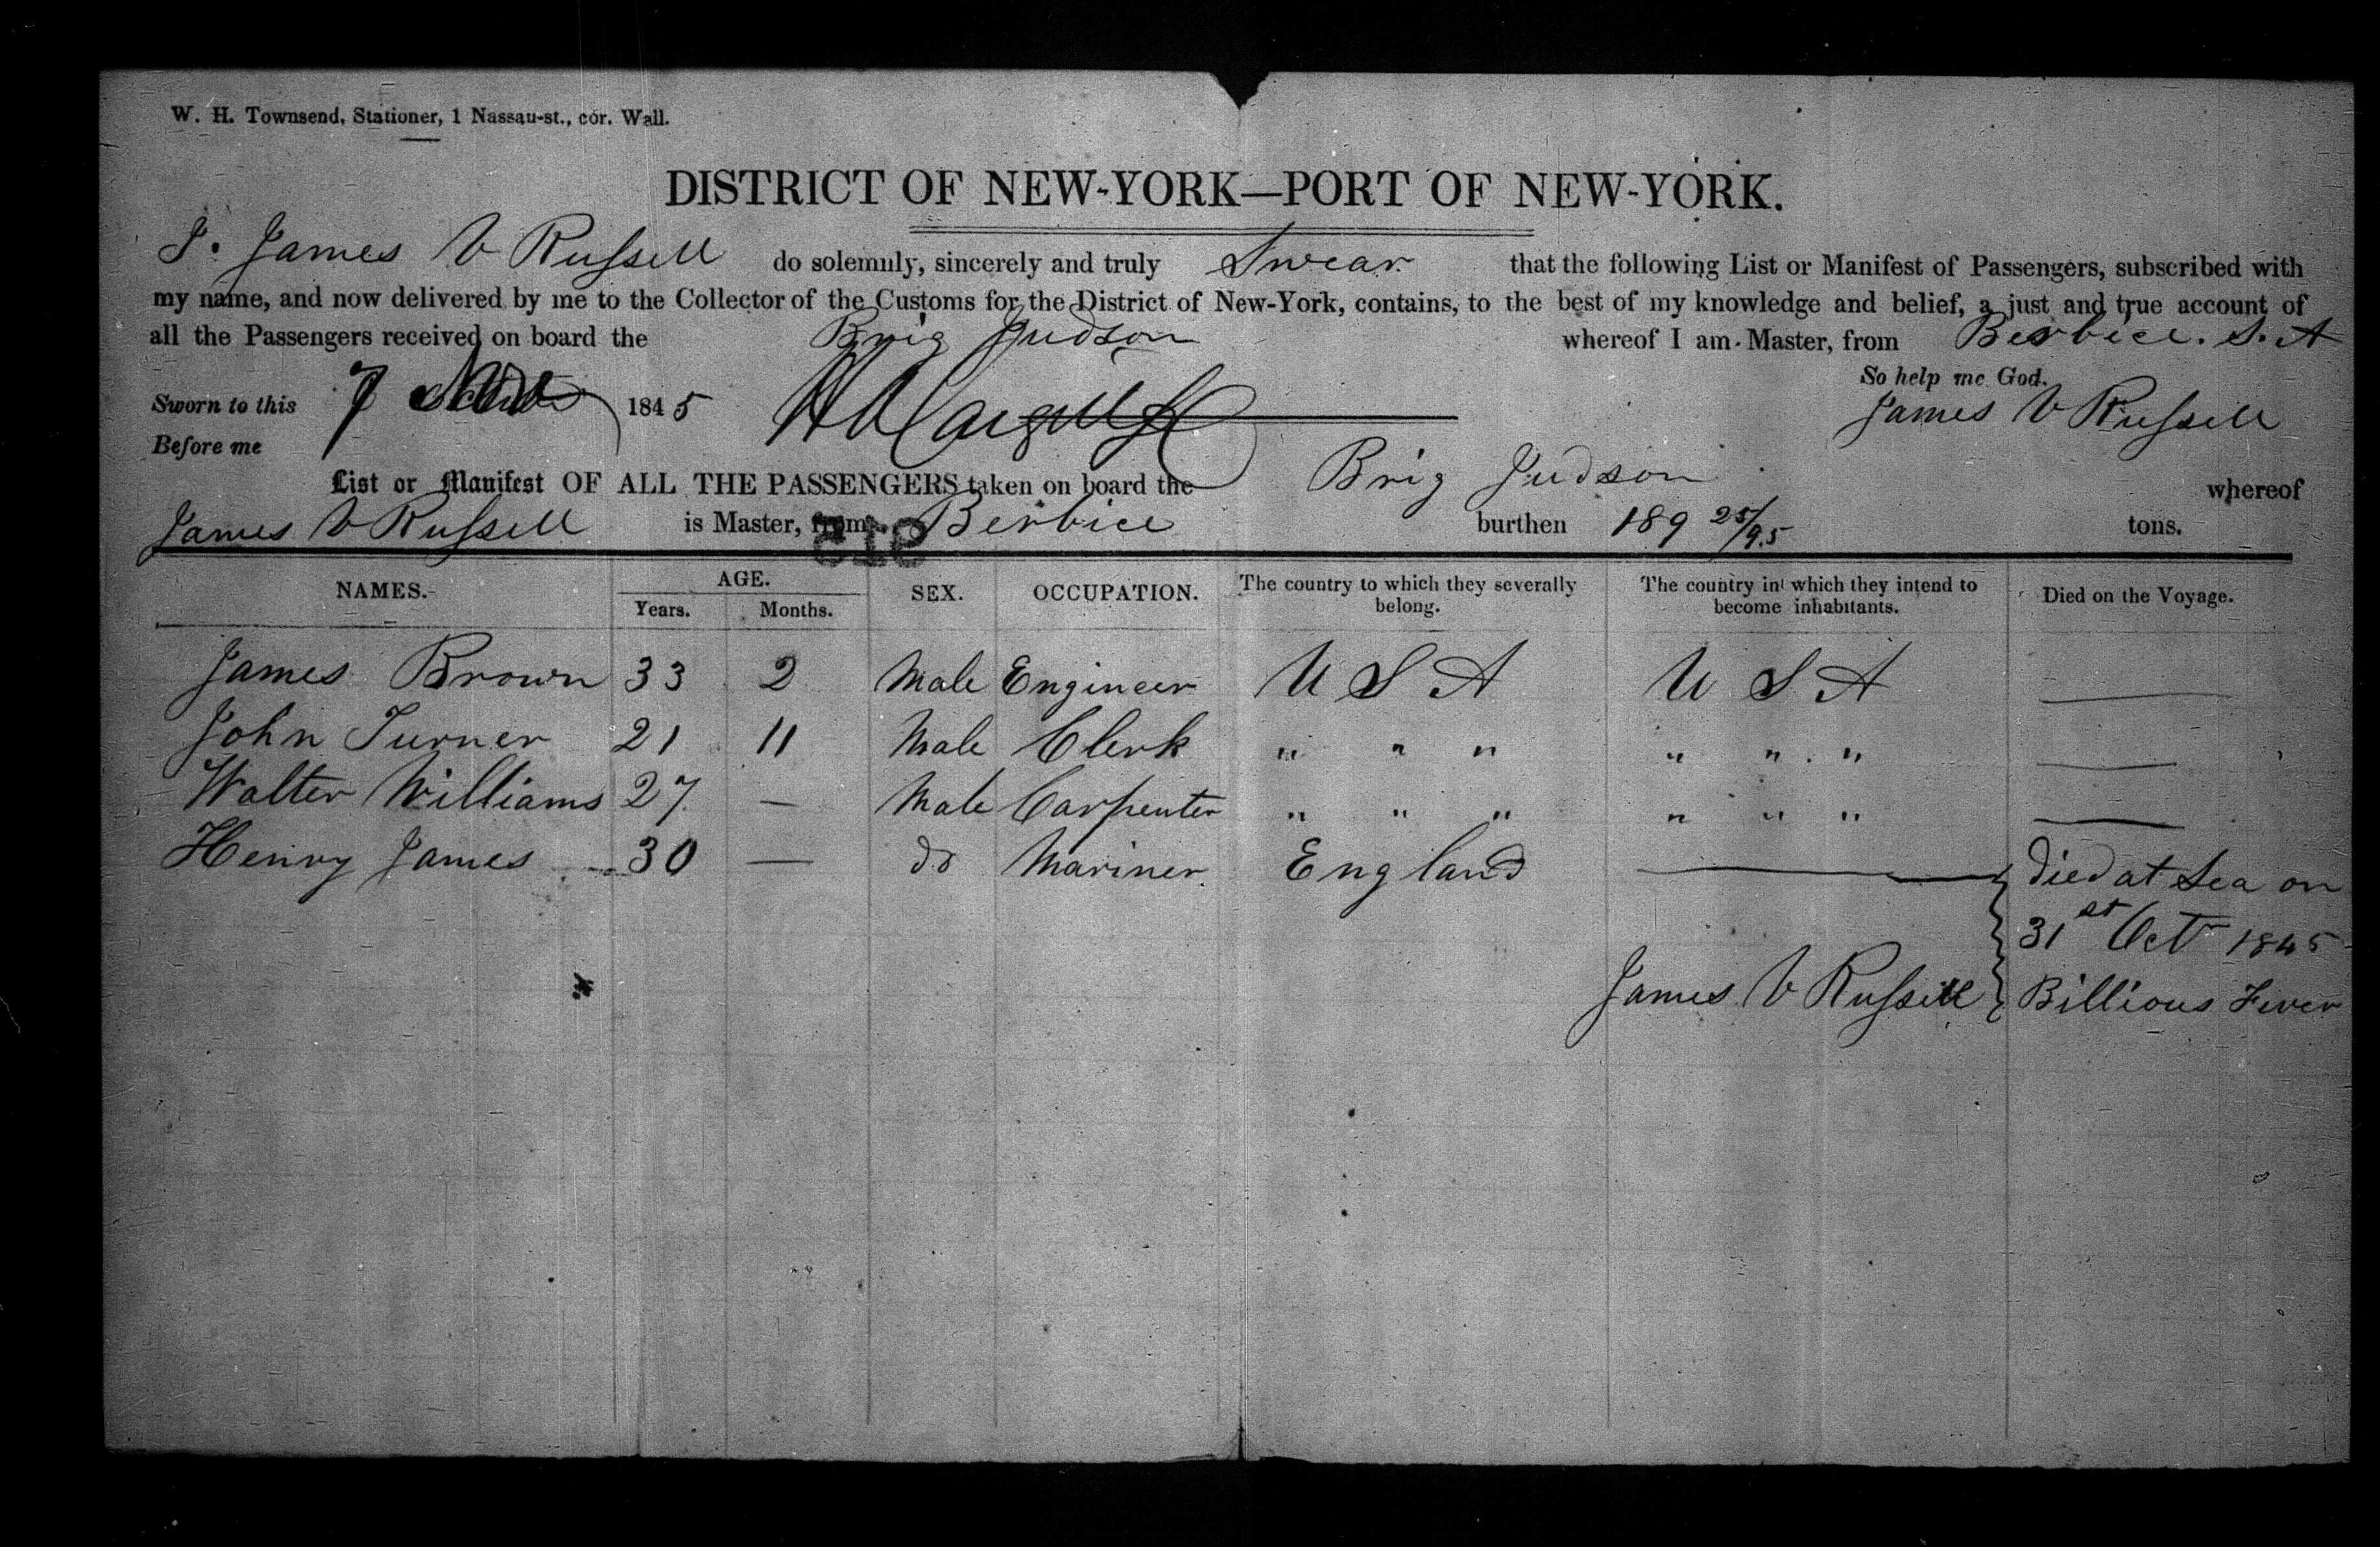 W. H. Townsend, Stationer, 1 Nassau-st., cor. Wall.
DISTRICT OF NEW-YORK—PORT OF NEW-YORK.
I. James V Russell do solemnly, sincerely and truly Swear that the following List or Manifest of Passengers, subscribed with
my name, and now delivered by me to the Collector of the Customs for the District of New-York, contains, to the best of my knowledge and belief, a just and true account of
all the Passengers received on board the Brig Judson whereof I am Master, from Berbice. S. A
So help me God.
Sworn to this 7 1845 James V Russell
Before me
List or Manifest OF ALL THE PASSENGERS taken on board the Brig Judson whereof
James V Russell is Master, from Berbice burthen 189 25/95 tons.
NAMES. AGE. Years. Months. SEX. OCCUPATION. The country to which they severally belong. The country in which they intend to become inhabitants. Died on the Voyage.
James Brown 33 2 Male Engineer U S A U S A —
John Turner 21 11 Male Clerk " " " " " " —
Walter Williams 27 — Male Carpenter " " " " " " —
Henry James 30 — do Mariner England — Died at Sea on
31st Oct 1845
James V Russell Billious Fever